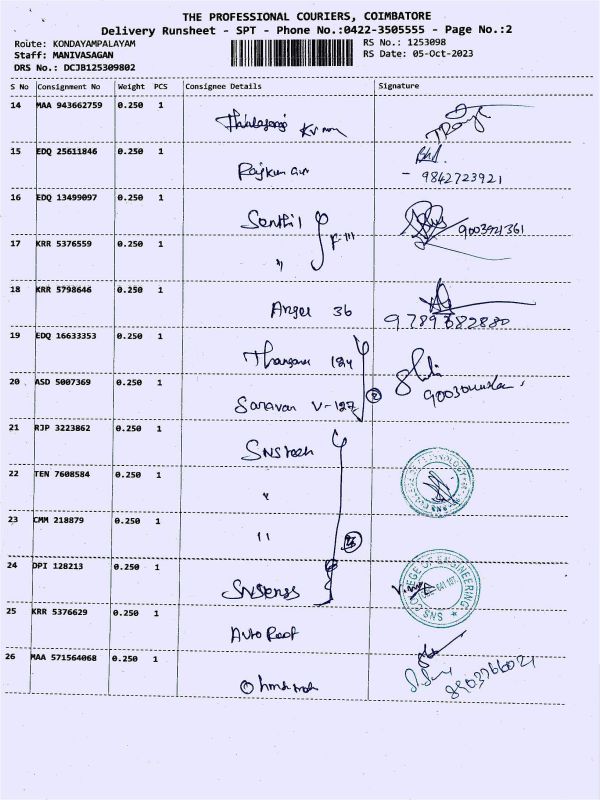 THE PROFESSIONAL COURIERS, COIMBATORE
Delivery Runsheet - SPT - Phone No.:0422-3505555 - Page No.:2
Route: KONDAYAMPALAYAM RS No.: 1253098
Staff: MANIVASAGAN RS Date: 05-Oct-2023
DRS No.: DCJB125309802
S No Consignment No Weight PCS Consignee Details Signature
14 MAA 943662759 0.250 1
15 EDQ 25611846 0.250 1 Rajkumar
9842723921
16 EDQ 13499097 0.250 1 Senthil F-111
17 KRR 5376559 0.250 1 "
18 KRR 5798646 0.250 1 Anger 36
19 EDQ 16633353 0.250 1 184
20 ASD 5007369 0.250 1 Saravan V-127 2
21 RJP 3223862 0.250 1 SNS tech
22 TEN 7608584 0.250 1 "
23 CMM 218879 0.250 1 "
24 DPI 128213 0.250 1
COLLEGE OF ENGINEERING
SNS
25 KRR 5376629 0.250 1 Auto Roof
26 MAA 571564068 0.250 1
8903766021